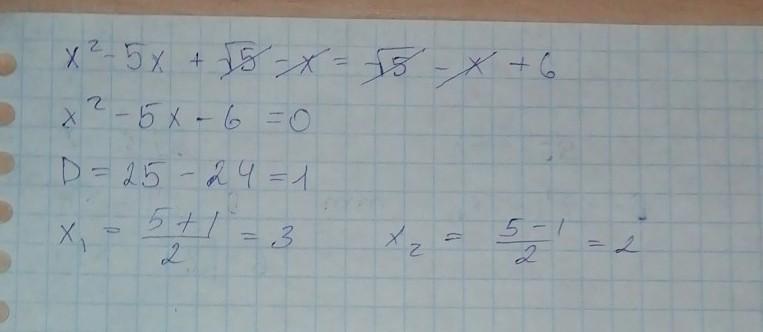 x² - 5x + √5 - x = √5 - x + 6
x² - 5x - 6 = 0
D = 25 - 24 = 1
x₁ = (5 + 1)/2 = 3 x₂ = (5 - 1)/2 = 2